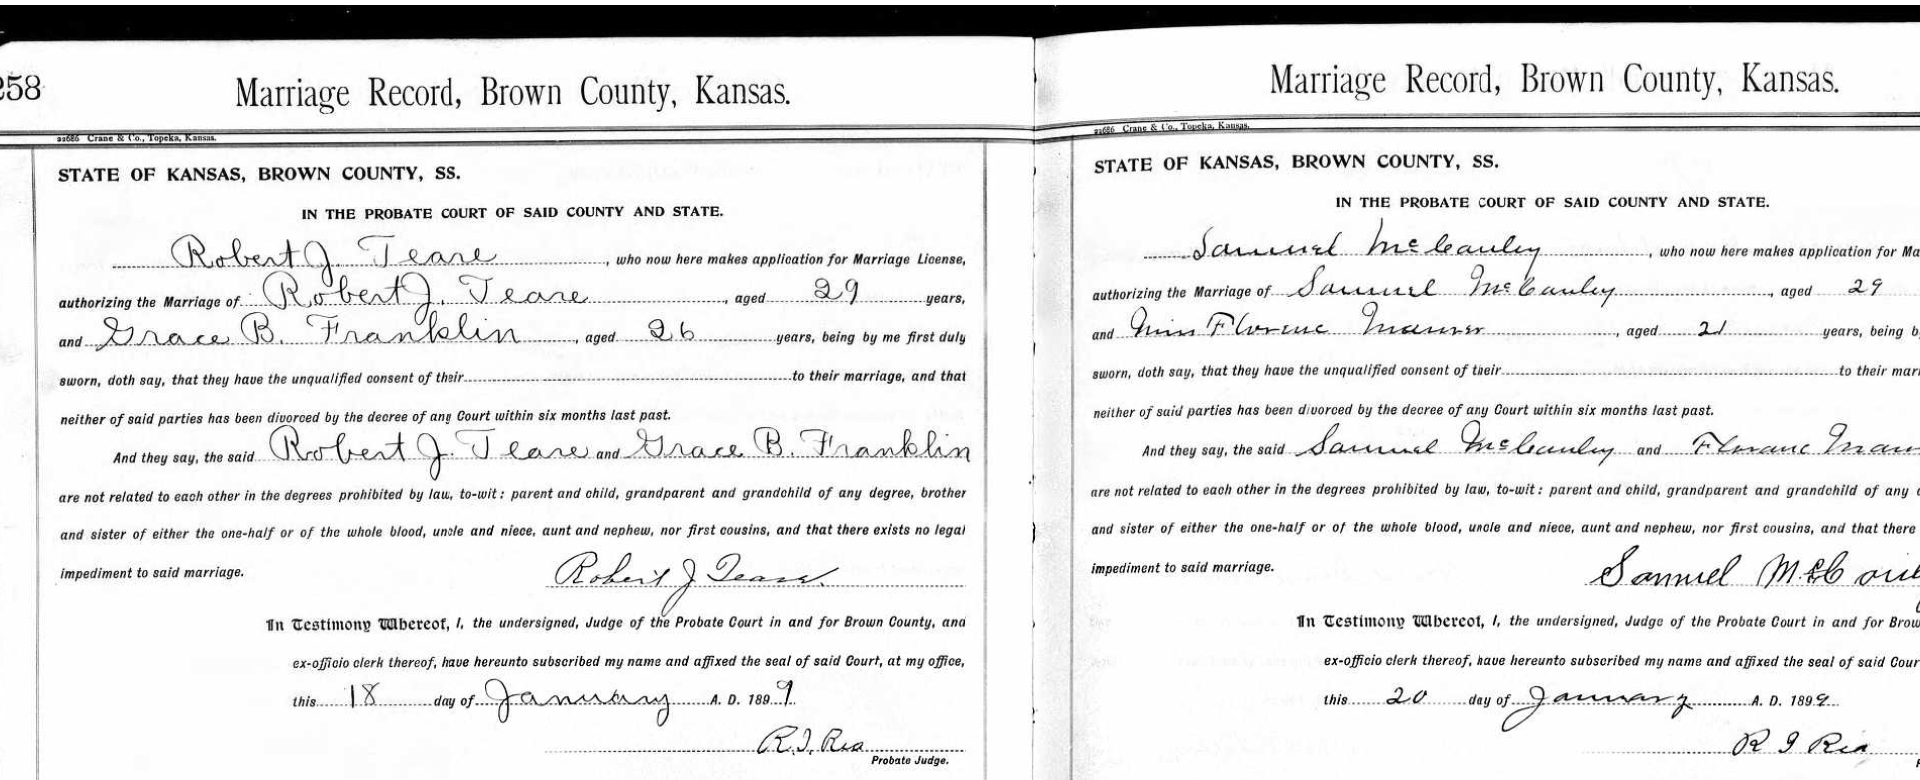 258
Marriage Record, Brown County, Kansas.
22686 Crane & Co., Topeka, Kansas.
STATE OF KANSAS, BROWN COUNTY, SS.
IN THE PROBATE COURT OF SAID COUNTY AND STATE.
Robert J. Teare, who now here makes application for Marriage License,
authorizing the Marriage of Robert J. Teare, aged 29 years,
and Grace B. Franklin, aged 26 years, being by me first duly
sworn, doth say, that they have the unqualified consent of their to their marriage, and that
neither of said parties has been divorced by the decree of any Court within six months last past.
And they say, the said Robert J. Teare and Grace B. Franklin
are not related to each other in the degrees prohibited by law, to-wit: parent and child, grandparent and grandchild of any degree, brother
and sister of either the one-half or of the whole blood, uncle and niece, aunt and nephew, nor first cousins, and that there exists no legal
impediment to said marriage. Robert J Teare.
In Testimony Whereof, I, the undersigned, Judge of the Probate Court in and for Brown County, and
ex-officio clerk thereof, have hereunto subscribed my name and affixed the seal of said Court, at my office,
this 18 day of January A. D. 1899.
R. I. Rea
Probate Judge.
Marriage Record, Brown County, Kansas.
22686 Crane & Co., Topeka, Kansas.
STATE OF KANSAS, BROWN COUNTY, SS.
IN THE PROBATE COURT OF SAID COUNTY AND STATE.
Samuel McCauley, who now here makes application for Ma
authorizing the Marriage of Samuel McCauley, aged 29
and Miss Florence, aged 21 years, being b
sworn, doth say, that they have the unqualified consent of their to their marr
neither of said parties has been divorced by the decree of any Court within six months last past.
And they say, the said Samuel McCauley and Florence
are not related to each other in the degrees prohibited by law, to-wit: parent and child, grandparent and grandchild of any
and sister of either the one-half or of the whole blood, uncle and niece, aunt and nephew, nor first cousins, and that there
impediment to said marriage. Samuel
In Testimony Whereof, I, the undersigned, Judge of the Probate Court in and for Brow
ex-officio clerk thereof, have hereunto subscribed my name and affixed the seal of said Cour
this 20 day of January A. D. 1899.
R I Rea